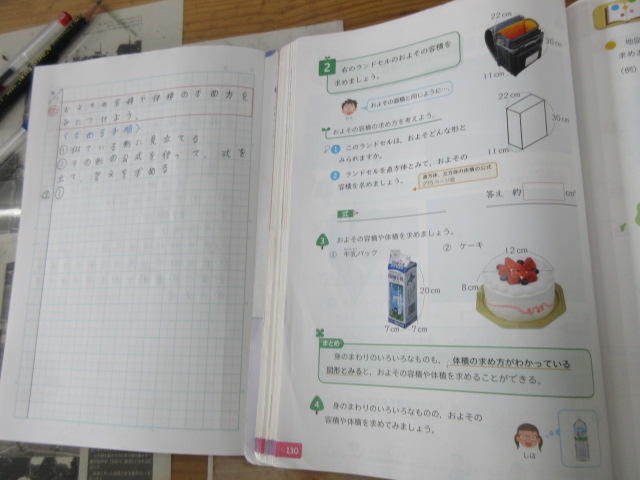 およその容積や体積の求め方を
みつけよう。
〈求める手順〉
①似ている形に見立てる
②その形の公式を使って、式を
立て、答えを求める
②①
2 右のランドセルのおよその容積を
求めましょう。
22cm
30cm
11cm
およその面積と同じように…。
およその容積の求め方を考えよう。
1 このランドセルは、およそどんな形と
みられますか。
2 ランドセルを直方体とみて、およその
容積を求めましょう。
直方体、立方体の体積の公式
22cm
30cm
11cm
式
答え 約 cm³
3 およその容積や体積を求めましょう。
① 牛乳パック
② ケーキ
20cm
7cm 7cm
12cm
8cm
まとめ
身のまわりのいろいろなものも、体積の求め方がわかっている
図形とみると、およその容積や体積を求めることができる。
4 身のまわりのいろいろなものの、およその
容積や体積を求めてみましょう。
しほ
130
求め
(例)